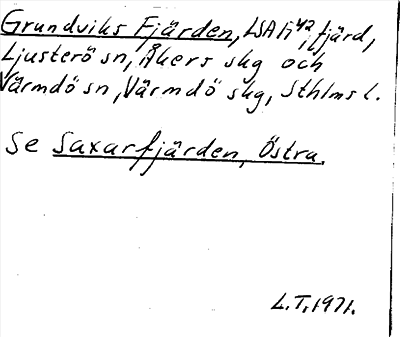 Grundviks Fjärden, LSA Fi 42, fjärd,
Ljusterö sn, Åkers skg och
Värmdö sn, Värmdö skg, Sthlms l.
Se Saxarfjärden, Östra.
L.T. 1971.